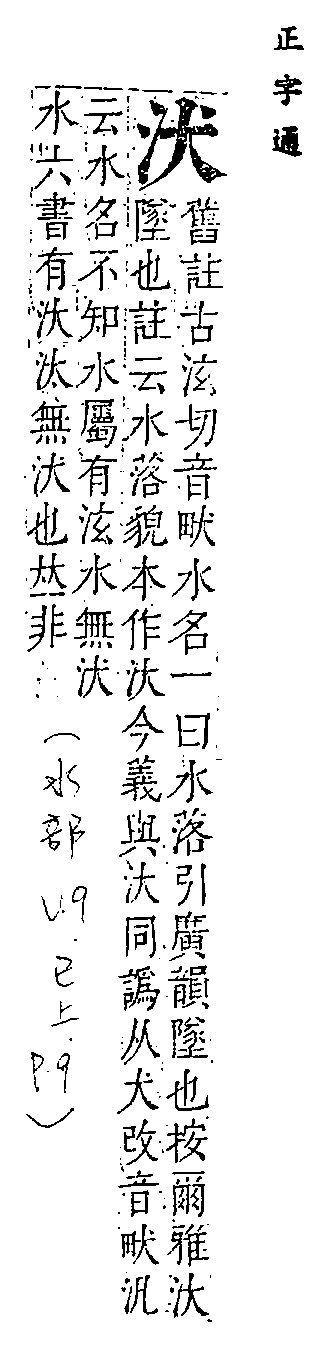 正字通
汱
舊註古泫切音畎水名一曰水落引廣韻墜也按爾雅汱
墜也註云水落貌本作汏今義與汱同譌从犬改音畎汎
云水名不知水屬有泫水無汱
水六書有汏汰無汱也𠀤非
(水部 V.9.已上.P.9)